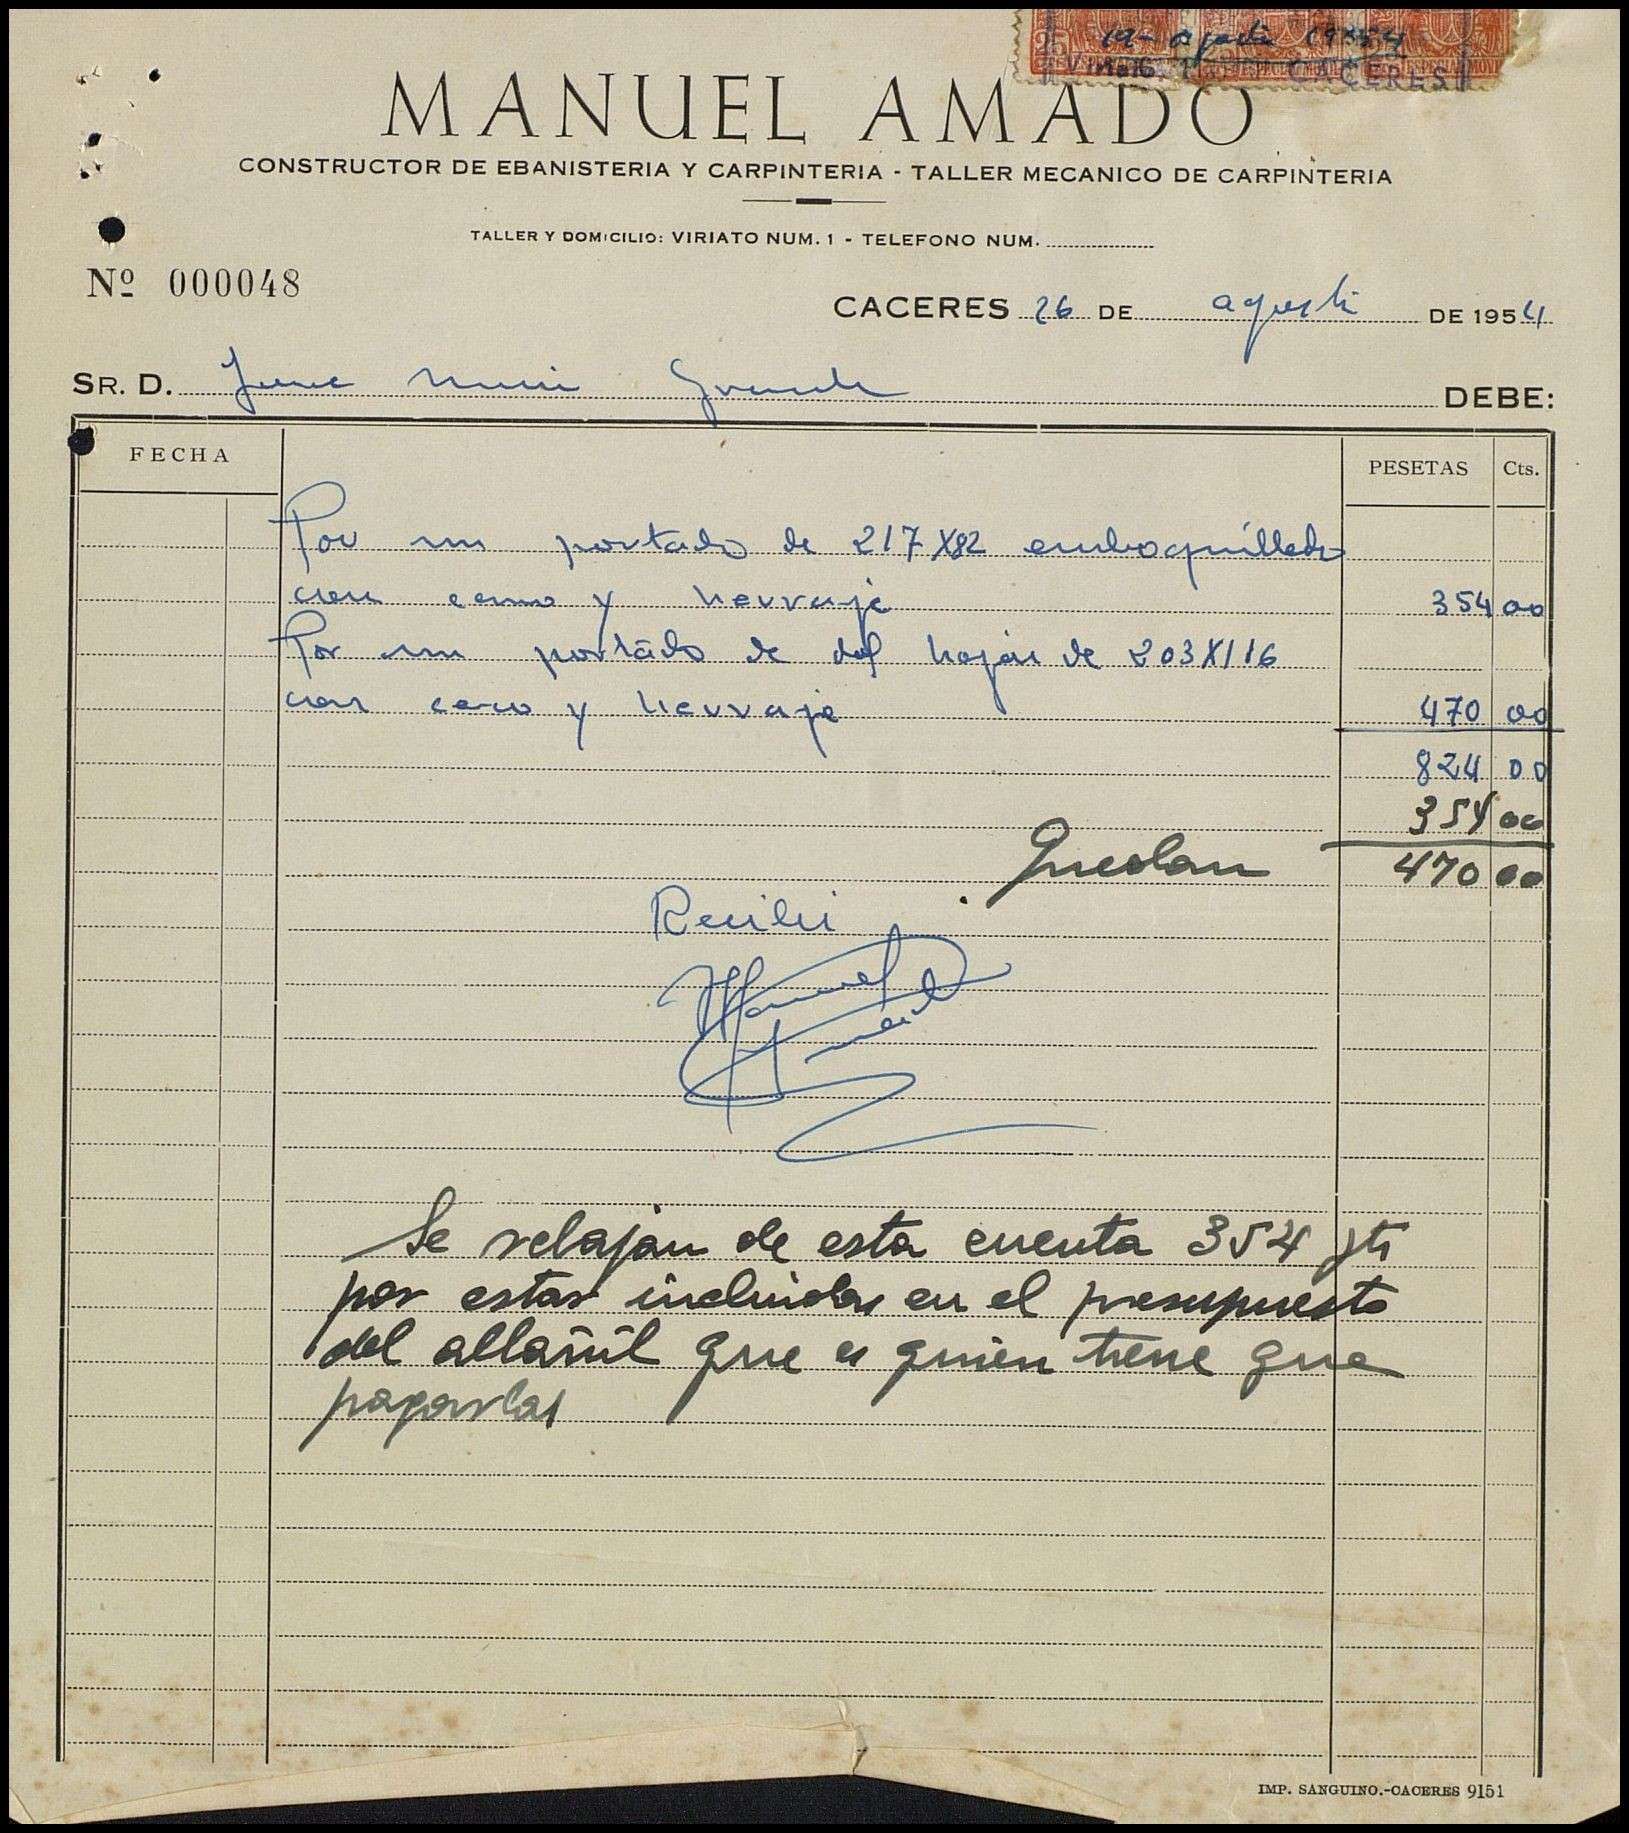 19- agosto 1954
CACERES
MANUEL AMADO
CONSTRUCTOR DE EBANISTERIA Y CARPINTERIA - TALLER MECANICO DE CARPINTERIA
TALLER Y DOMICILIO: VIRIATO NUM. 1 - TELEFONO NUM.
Nº 000048
CACERES 26 DE agosto DE 1954
SR. D. DEBE:
FECHA PESETAS Cts.
Por un portado de 217X82 emboquillado
con cerco y herraje 354 00
Por un portado de dos hojas de 203X116
con cerco y herraje 470 00
824 00
354 00
Quedan 470 00
Recibi
Manuel
Amado
Se rebajan de esta cuenta 354 pts
por estar incluidas en el presupuesto
del allañil que es quien tiene que
pagarlas
IMP. SANGUINO.-CACERES 9151